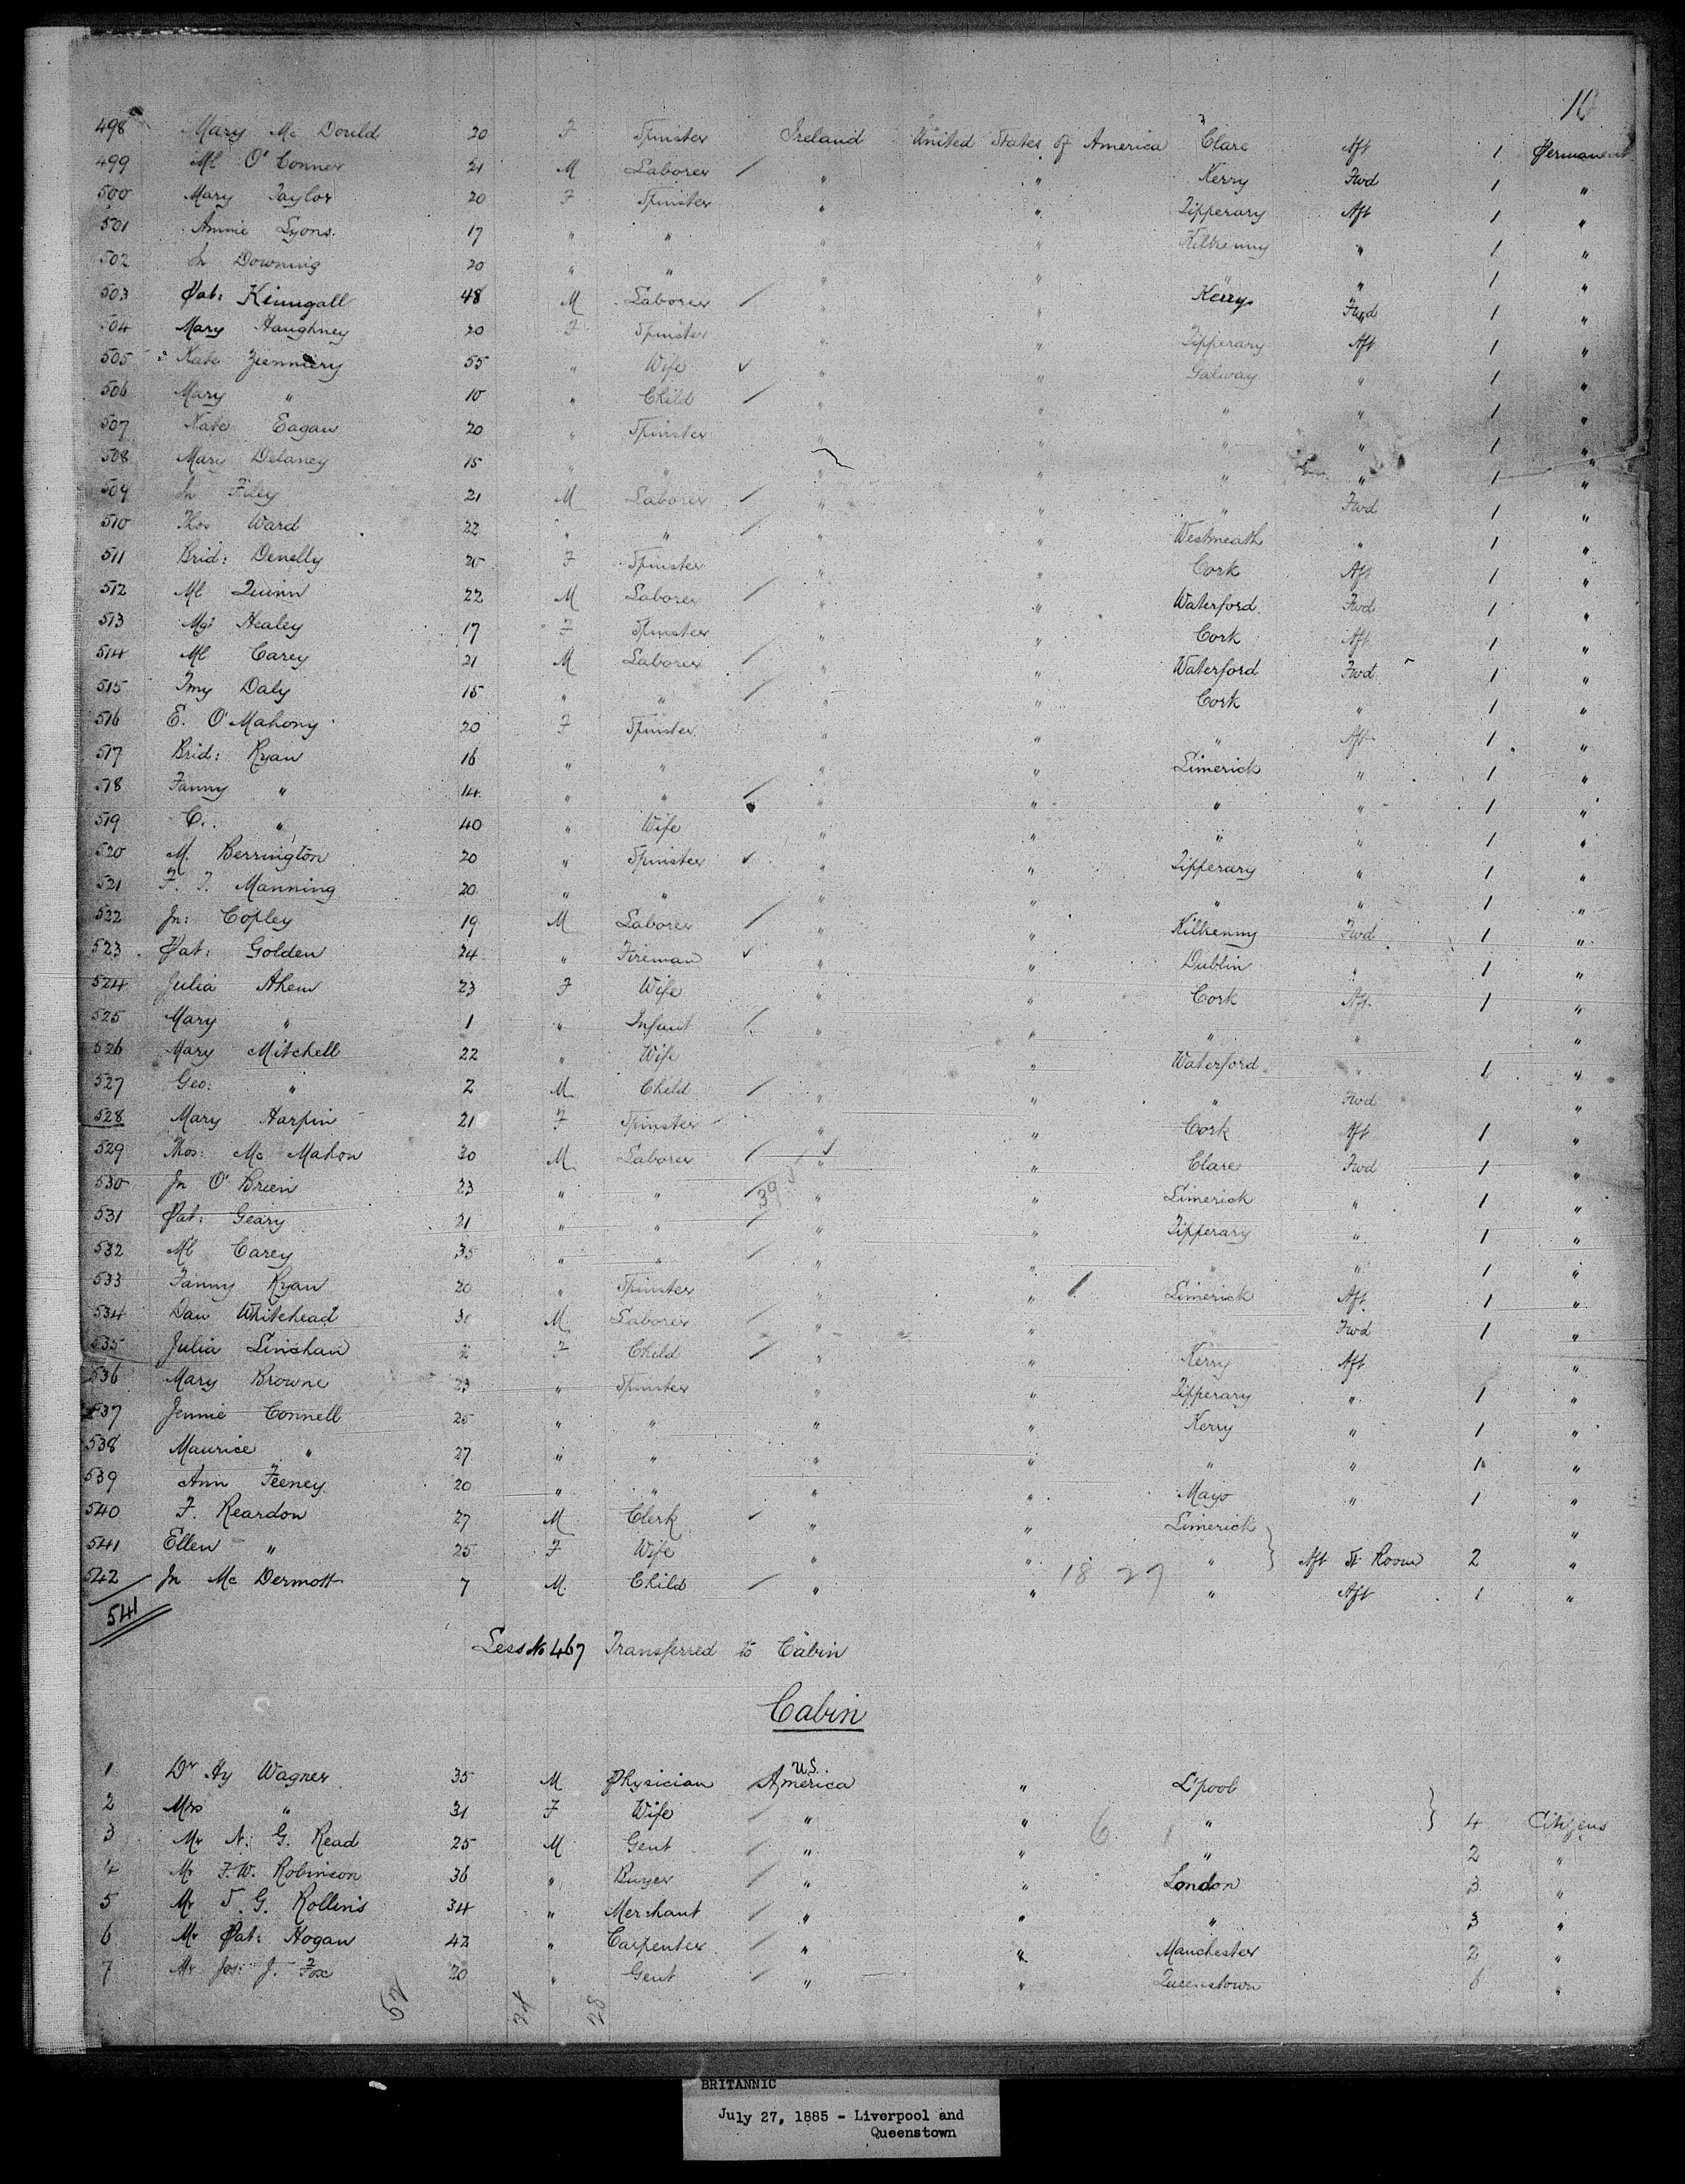 10
498 Mary Mc Dould 20 F Spinster Ireland United States of America Clare Aft 1 Permanent
499 Ml O'Conner 21 M Laborer / " " Kerry Fwd 1 "
500 Mary Taylor 20 F Spinster " " Tipperary Aft 1 "
501 Annie Lyons 17 " " " " Kilkenny " 1 "
502 Jn Downing 20 " " " " " " 1 "
503 Pat: Kinugall 48 M Laborer / " " Kerry Fwd 1 "
504 Mary Haughney 20 F Spinster " " Tipperary Aft 1 "
505 Kate 55 " Wife ✓ " " Galway " 1 "
506 Mary " 10 " Child / " " " " 1 "
507 Kate Eagan 20 " Spinster " " " " 1 "
508 Mary Delaney 15 " " " " " " 1 "
509 Jn Filey 21 M Laborer / " " " Fwd 1 "
510 Thos Ward 22 " " / " " Westmeath " 1 "
511 Brid: Denelly 20 F Spinster " " Cork Aft 1 "
512 Ml Quinn 22 M Laborer / " " Waterford Fwd 1 "
513 Mgt Healey 17 F Spinster " " Cork Aft 1 "
514 Ml Carey 21 M Laborer / " " Waterford Fwd 1 "
515 Tmy Daly 15 " " / " " Cork " 1 "
516 E. O'Mahony 20 F Spinster " " " Aft 1 "
517 Brid: Ryan 16 " " " " Limerick " 1 "
518 Fanny " 14 " " / " " " " 1 "
519 C. " 40 " Wife " " " " 1 "
520 M. Berrington 20 " Spinster ✓ " " Tipperary " 1 "
521 F. J. Manning 20 " " " " " " 1 "
522 Jn: Copley 19 M Laborer / " " Kilkenny Fwd 1 "
523 Pat: Golden 24 " Fireman ✓ " " Dublin " 1 "
524 Julia Ahern 23 F Wife " " Cork Aft 1 "
525 Mary " 1 " Infant / " " " " "
526 Mary Mitchell 22 " Wife " " Waterford " 1 "
527 Geo: " 2 M Child / " " " Fwd "
528 Mary Harpin 21 F Spinster " " Cork Aft 1 "
529 Thos: Mc Mahon 30 M Laborer / " " Clare Fwd 1 "
530 Jn O'Brien 23 " " / 39 " " Limerick " 1 "
531 Pat: Geary 21 " " / " " Tipperary " 1 "
532 Ml Carey 35 " " / " " " " 1 "
533 Fanny Ryan 20 " Spinster " " Limerick Aft 1 "
534 Dan Whitehead 30 M Laborer / " " " Fwd 1 "
535 Julia Linshan 2 F Child / " " Kerry Aft "
536 Mary Browne 23 " Spinster " " Tipperary " 1 "
537 Jennie Connell 25 " " " " Kerry " 1 "
538 Maurice " 27 " " " " " " 1 "
539 Ann Feeney 20 " " " " Mayo " 1 "
540 F. Reardon 27 M Clerk / " " Limerick "
541 Ellen " 25 F Wife " " " Aft St Room 2 "
542 Jn Mc Dermott 7 M Child / " " 18 27 " Aft 1 "
541
Less No 467 Transferred to Cabin
Cabin
1 Dr Hy Wagner 35 M Physician U.S. America " L'pool
2 Mrs " 31 F Wife / " " " 4 Citizens
3 Mr N. G. Read 25 M Gent / " " 6 " 2 "
4 Mr F. W. Robinson 36 " Buyer / " " London 3 "
5 Mr T. G. Rollins 34 " Merchant / " " " 3 "
6 Mr Pat: Hogan 42 " Carpenter / " " Manchester 2 "
7 Mr Jos: J. Fox 20 " Gent / " " Queenstown 6 "
BRITANNIC
July 27, 1885 - Liverpool and
Queenstown